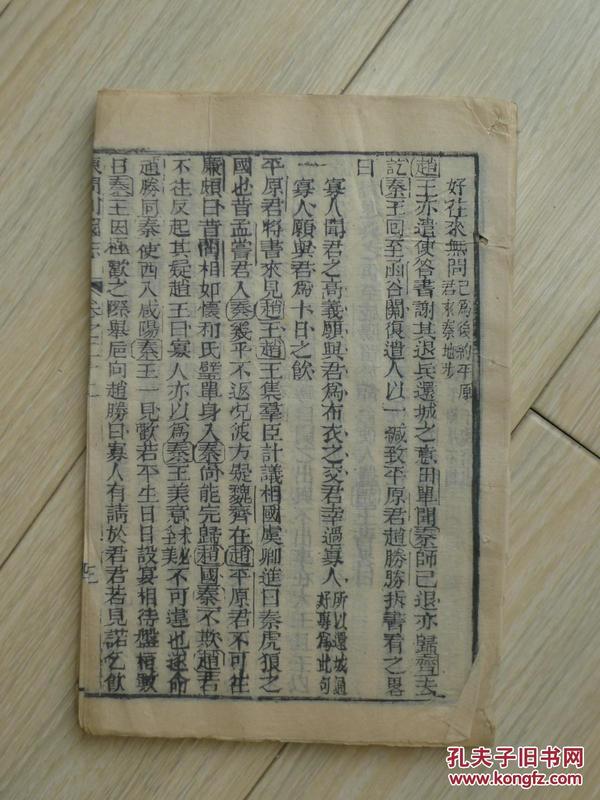 好往來無間已為後約平原君來秦地步
趙王亦遣使答書謝其退兵還城之意田單聞秦師已退亦歸齊去
訖秦王回至函谷關復遣人以一緘致平原君趙勝勝拆書看之畧
曰
寡人聞君之高義願與君為布衣之交君幸過寡人所以還城通好專為此句
寡人願與君為十日之飲
平原君將書來見趙王趙王集羣臣計議相國虞卿進曰秦虎狼之
國也昔孟嘗君入秦幾乎不返况彼方疑魏齊在趙平原君不可往
廉頗曰昔藺相如懷和氏璧單身入秦尚能完歸趙國秦不欺趙若
不往反起其疑趙王曰寡人亦以為秦王美意不可違也遂命
趙勝同秦使西入咸陽秦王一見歡若平生日日設宴相待盤桓數
日秦王因極歡之際舉卮向趙勝曰寡人有請於君君若見諾乞飲
東周列國志 卷之二十二
孔夫子旧书网
www.kongfz.com